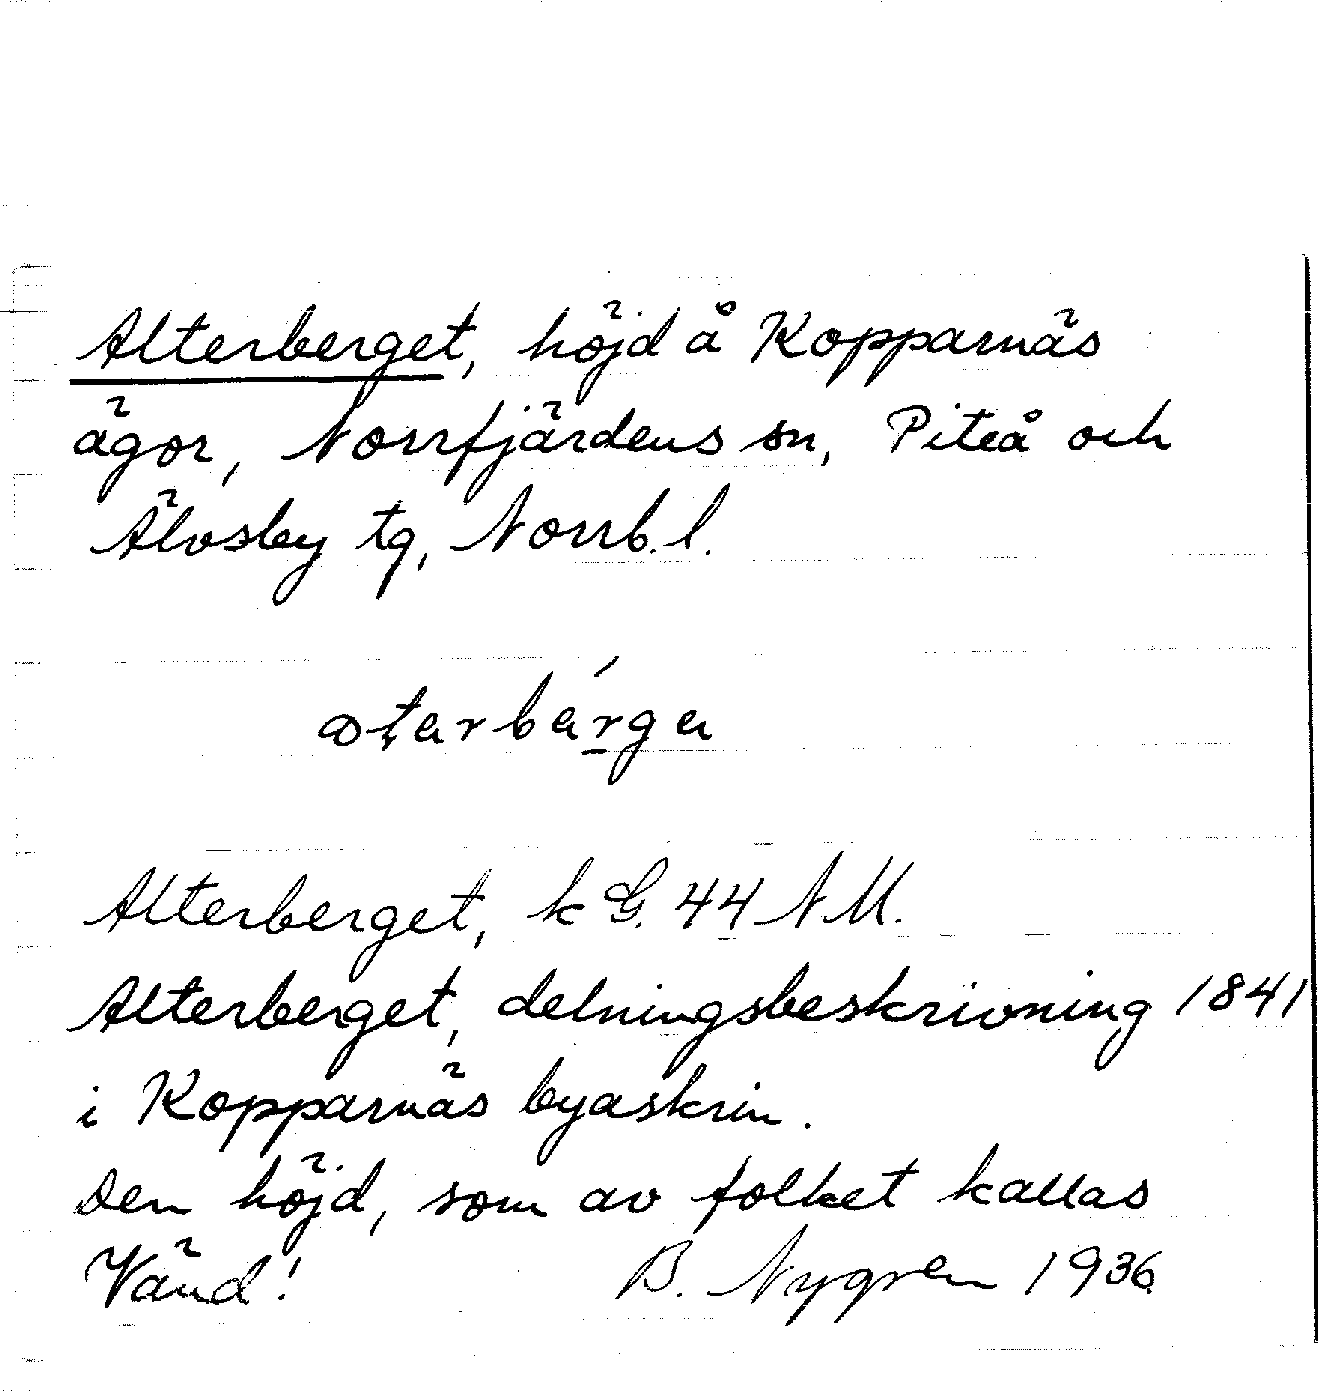 Alterberget, höjd å Kopparnäs
ägor, Norrfjärdens sn, Piteå och
Älvsby tg, Norrb. l.
Alterberget, k G. 44 NM.
Alterberget, delningsbeskrivning 1841
i Kopparnäs byaskrin.
Den höjd, som av folket kallas
Vänd! B. Nygren 1936